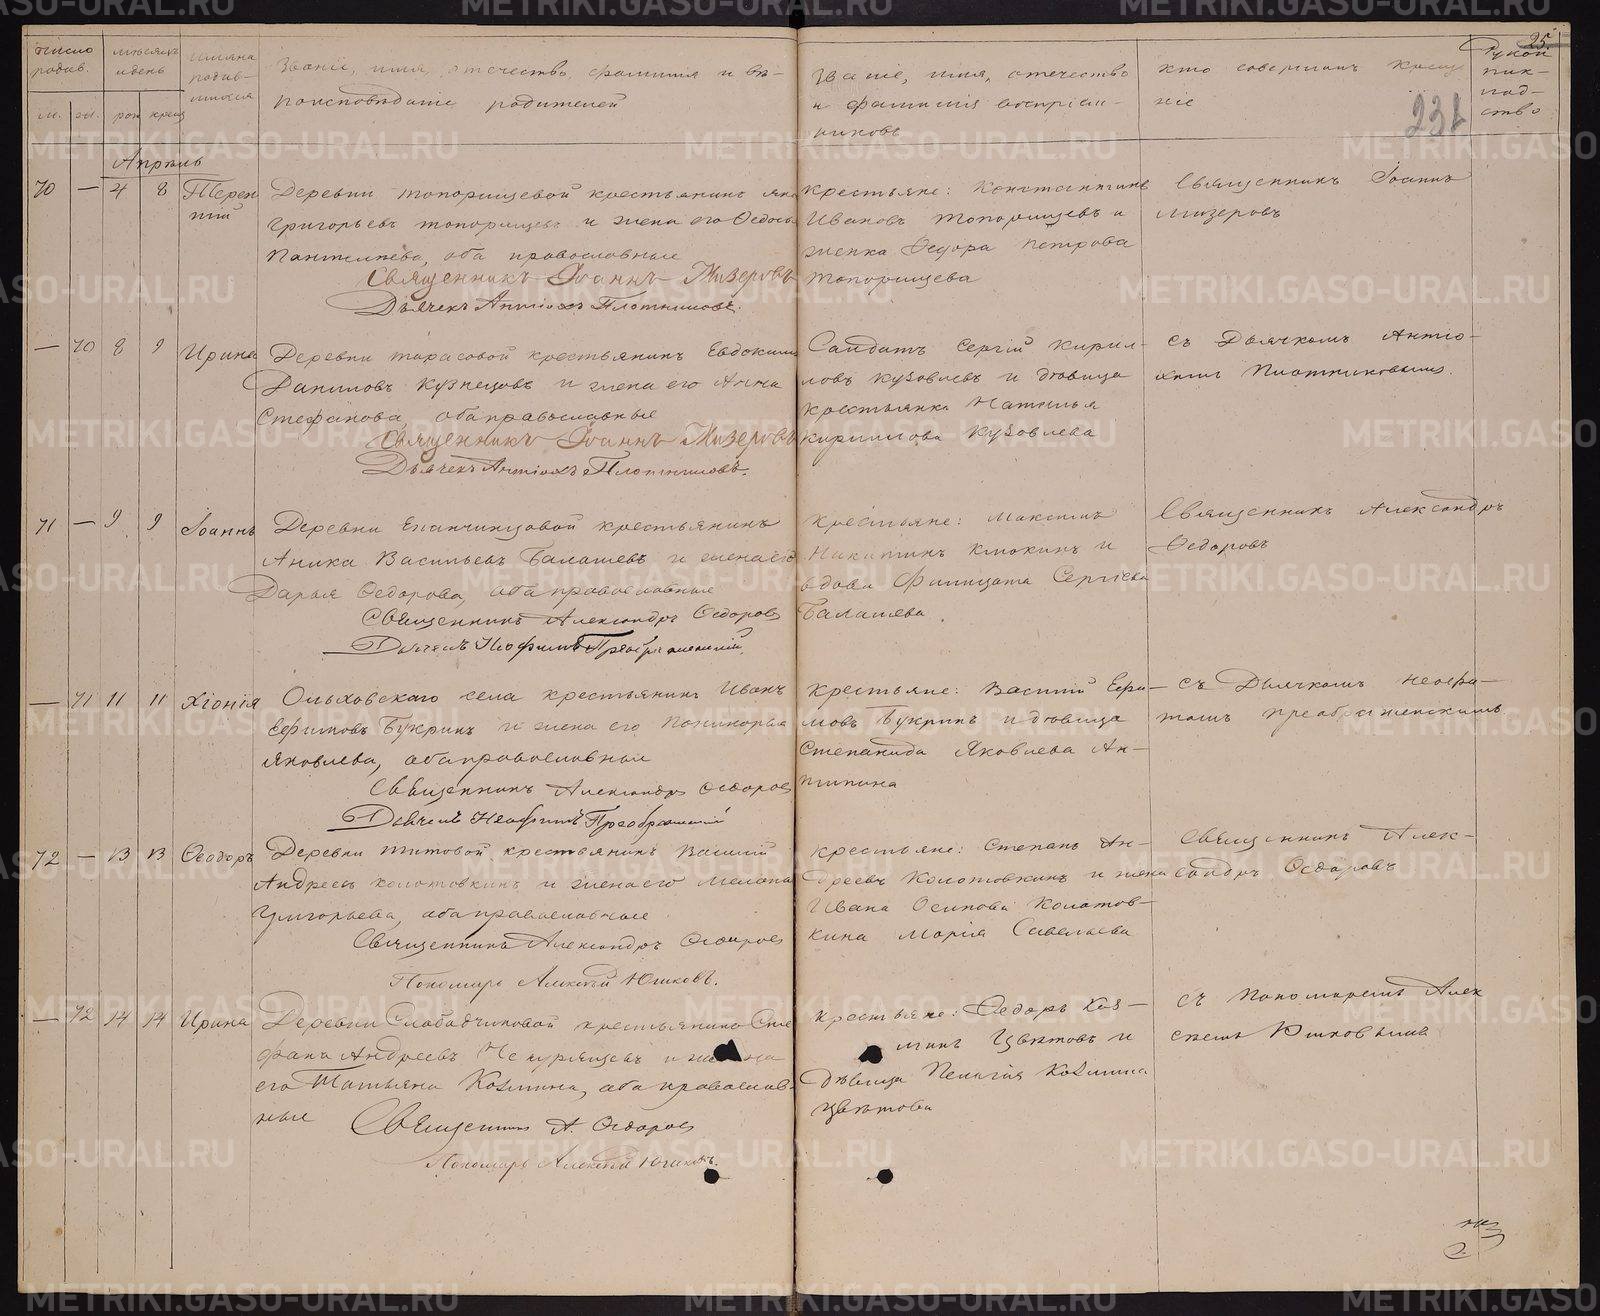 25.
231
Число родив.
Месяцъ и день
Имяна родив-
шихся
Званіе, имя, отчество, фамилія и вѣ-
роисповѣданіе родителей
Званіе, имя, отчество
и фамилія воспріем-
никовъ
Кто совершалъ креще
ніе
Рукой
прик-
лад-
ство
м. ж. рож крещ
Апрѣль
70 — 4 8 Терен
тій
Деревни Топорищевой крестьянинъ
Григорьевъ Топорищевъ и жена его Ѳедось
Пантилѣева, оба православные
Священникъ Іоаннъ Мизеровъ
Дьячекъ Антіохъ Плотниковъ.
Крестьяне: Константинъ
Ивановъ Топорищевъ и
женка Ѳедора Петрова
Топорищева
Священникъ Іоаннъ
Мизеровъ
— 70 8 9 Ирина
Деревни Тарасовой крестьянинъ Евдокимъ
Даниловъ Кузнецовъ и жена его Анна
Стефанова, оба православные
Священникъ Іоаннъ Мизеровъ
Дьячекъ Антіохъ Плотниковъ.
Салдатъ Сергій Кирил-
ловъ Кузовлевъ и дѣвица
крестьянка Наталья
Кирилова Кузовлева
Съ Дьячкомъ Антіо-
хомъ Плотниковымъ.
71 — 9 9 Іоаннъ
Деревни Епанчинцовой крестьянинъ
Аника Васильевъ Балашевъ и жена его
Дарья Ѳедорова, оба православные
Священникъ Александръ Ѳедоровъ
Дьячекъ Неофитъ Преображенскій.
Крестьяне: Максимъ
Никитинъ Клюкинъ и
вдова Филицата Сергіева
Балашева
Священникъ Александръ
Ѳедоровъ
— 71 11 11 Хіонія
Ольховскаго села крестьянинъ Иванъ
Ефимовъ Букринъ и жена его Поликарья
Яковлева, оба православные
Священникъ Александръ Ѳедоровъ
Дьячекъ Неофитъ Преображенскій
Крестьяне: Василій Ефи-
мовъ Букринъ и дѣвица
Степанида Яковлева Ан-
типина
Съ Дьячкомъ Неофи-
томъ Преображенскимъ
72 — 13 13 Ѳеодоръ
Деревни Титовой крестьянинъ Василій
Андреевъ Колотовкинъ и жена его Мелана
Григорьева, оба православные
Священникъ Александръ Ѳедоровъ
Пономарь Алексѣй Юшковъ.
Крестьяне: Степанъ Ан-
дреевъ Колотовкинъ и жена
Ивана Осипова Колотов-
кина Марія Савельева
Священникъ Алек-
сандръ Ѳедоровъ
— 72 14 14 Ирина
Деревни Слабадчиковой крестьянинъ Сте
фанъ Андреевъ и жена
его Татьяна Козмина, оба православ-
ные
Священникъ А. Ѳедоровъ
Пономарь Алексѣй Юшковъ.
Крестьяне: Ѳедоръ Коз-
минъ Цвѣтовъ и
дѣвица Пелагія Козмина
Цвѣтова
Съ Пономаремъ Алек
сѣемъ Юшковымъ
METRIKI.GASO-URAL.RU